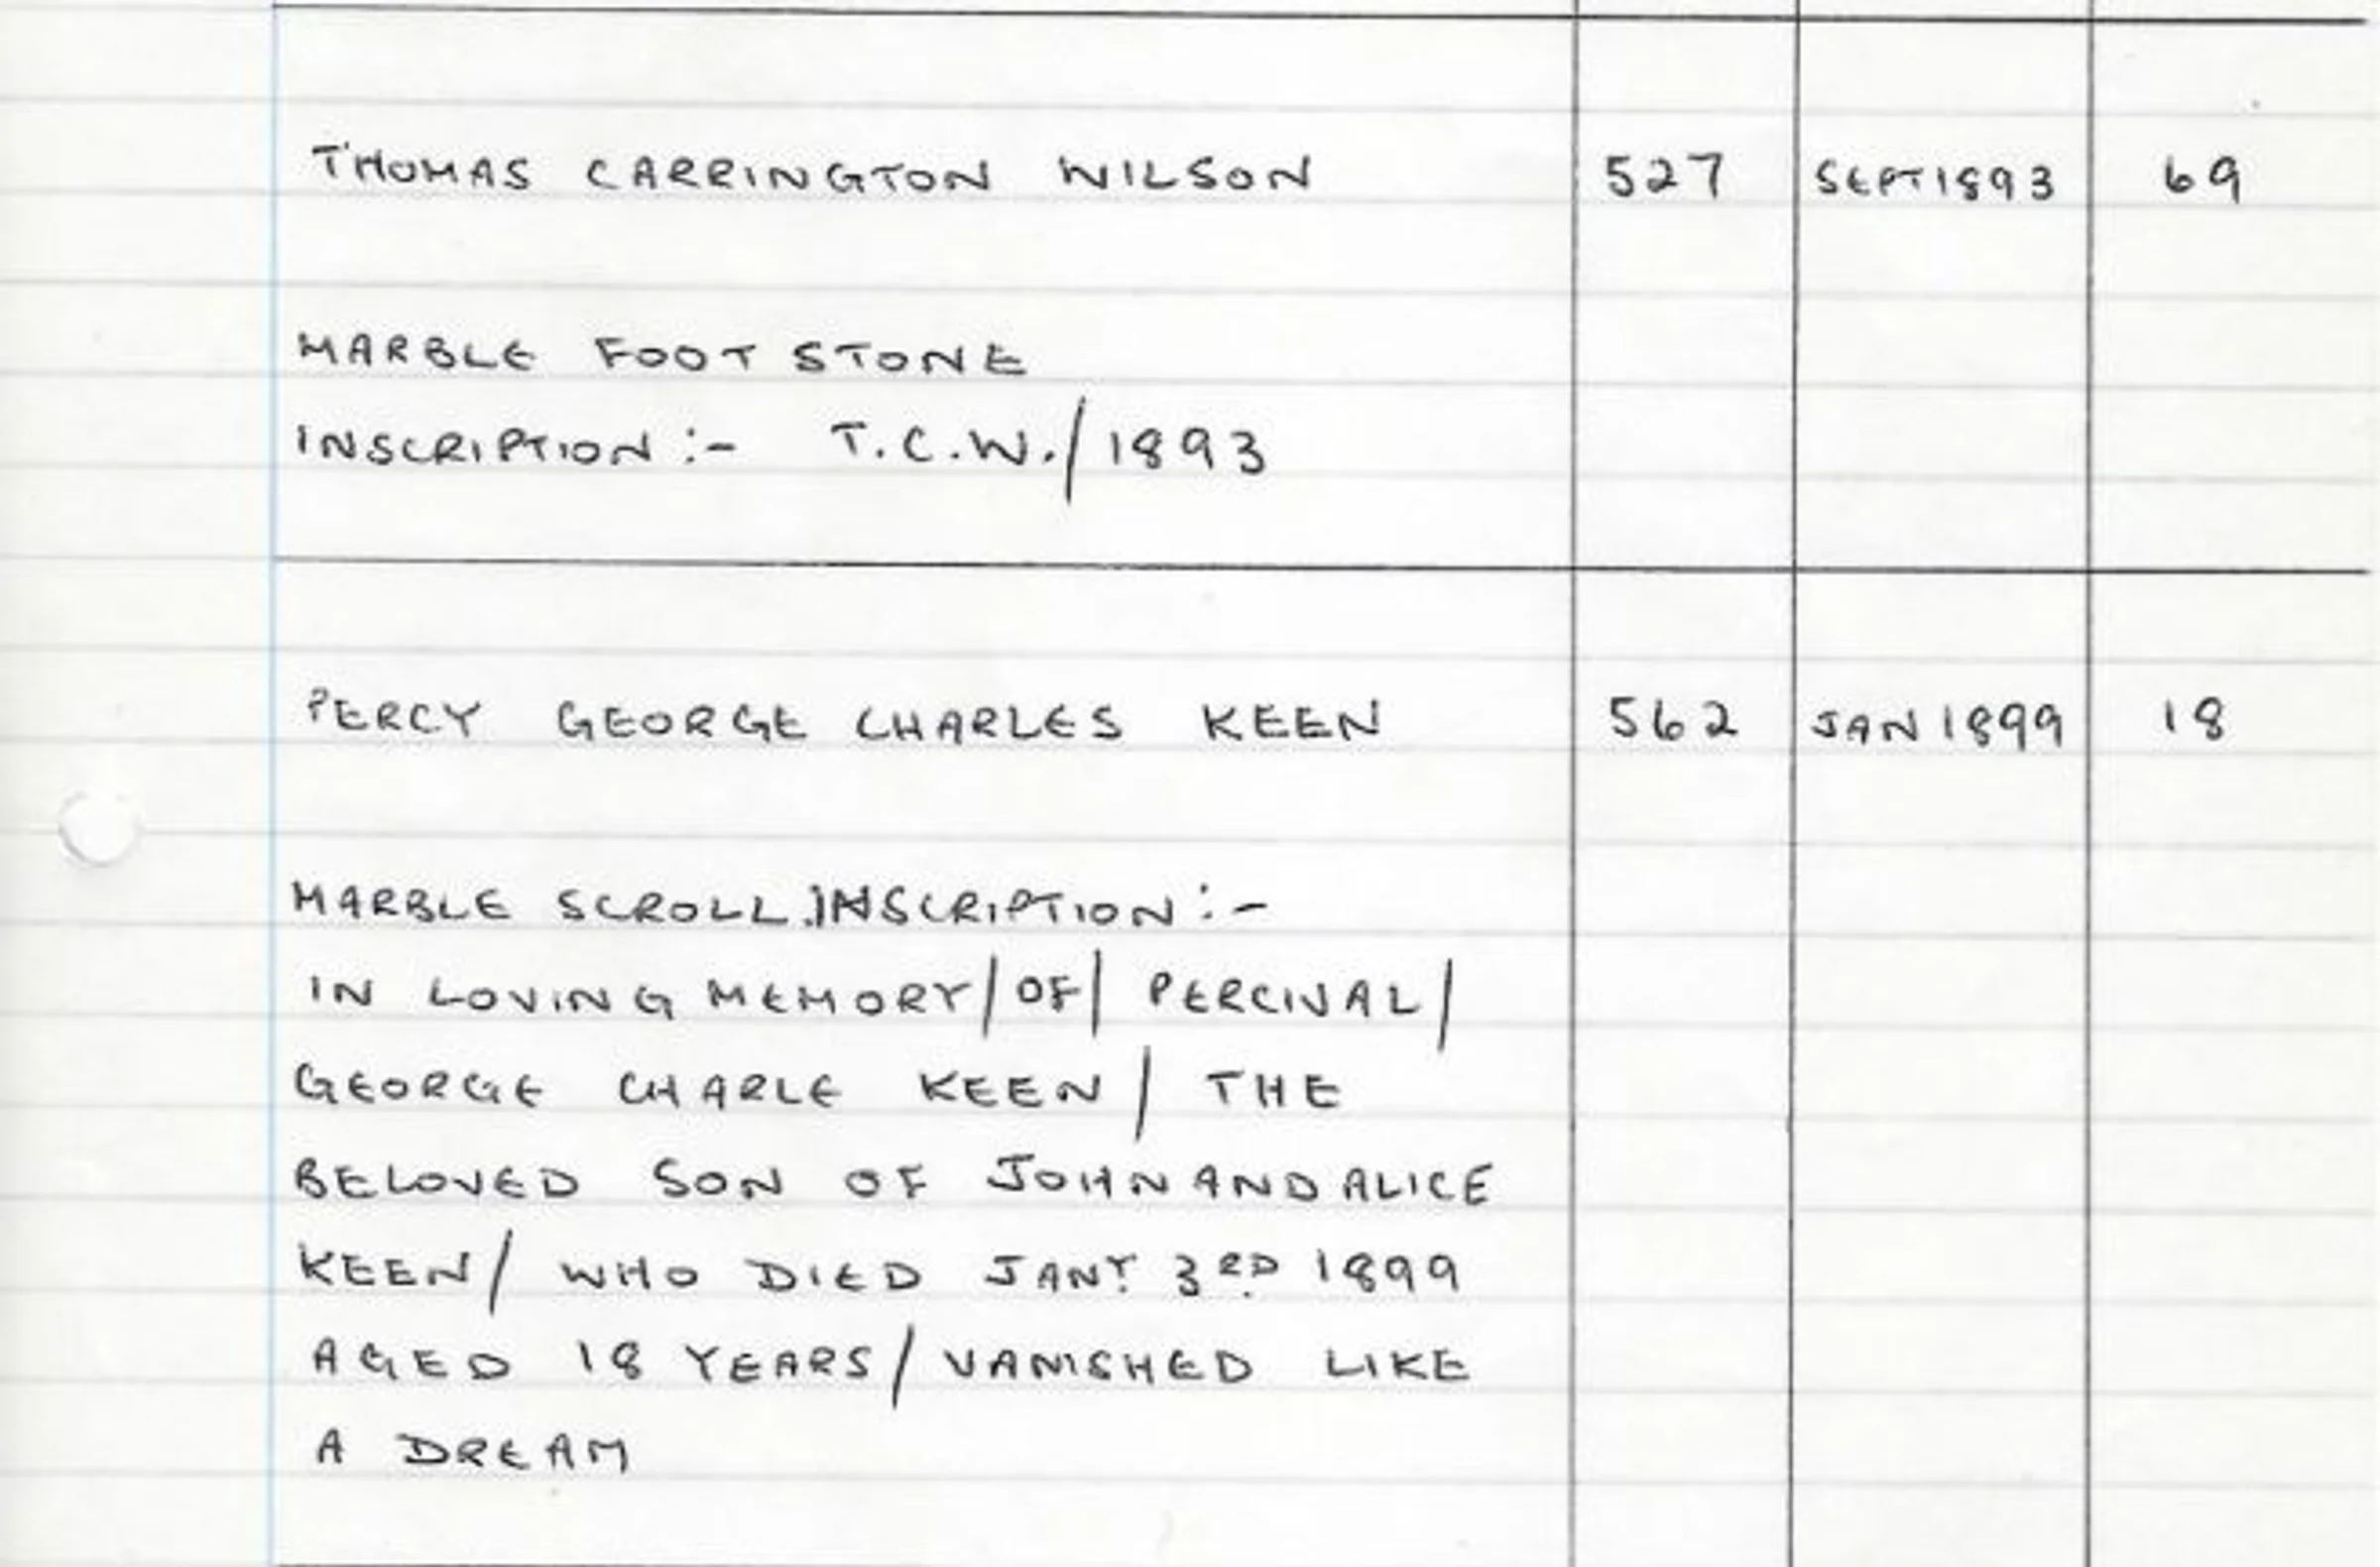 THOMAS CARRINGTON WILSON 527 SEPT 1893 69
MARBLE FOOT STONE
INSCRIPTION :- T.C.W./1893
PERCY GEORGE CHARLES KEEN 562 JAN 1899 18
MARBLE SCROLL. INSCRIPTION :-
IN LOVING MEMORY/OF/ PERCIVAL/
GEORGE CHARLE KEEN/ THE
BELOVED SON OF JOHN AND ALICE
KEEN/ WHO DIED JANY. 3RD. 1899
AGED 18 YEARS/VANISHED LIKE
A DREAM